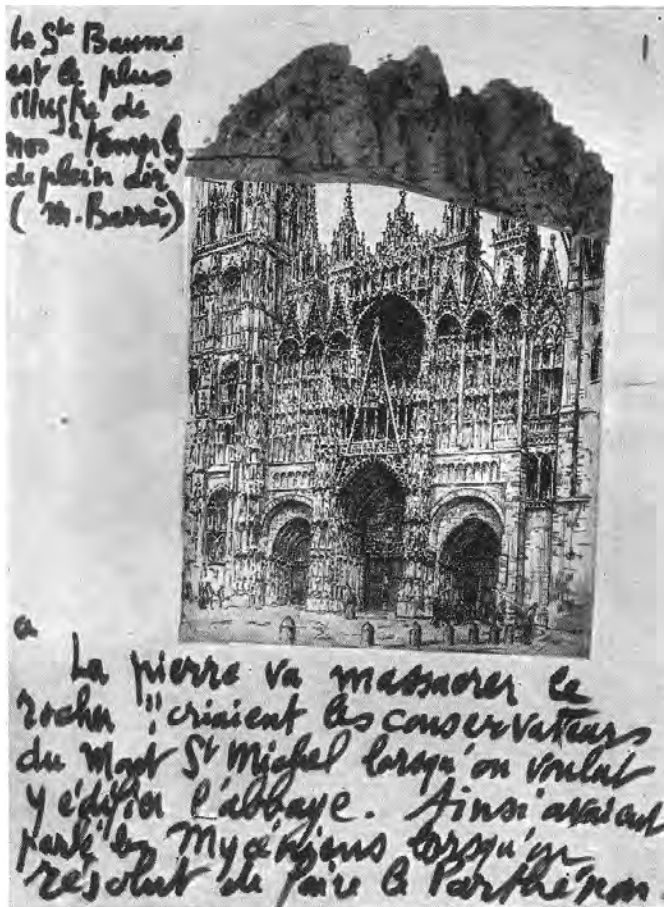 la Ste Baume
est le plus
illustre de
nos temples
de plein air
(M. Barrès)
1
"
La pierre va massacrer le
rocher" criaient les conservateurs
du Mont St Michel lorsqu'on voulut
y édifier l'abbaye. Ainsi avaient
parlé les Mycéniens lorsqu'on
résolut de faire le Parthénon